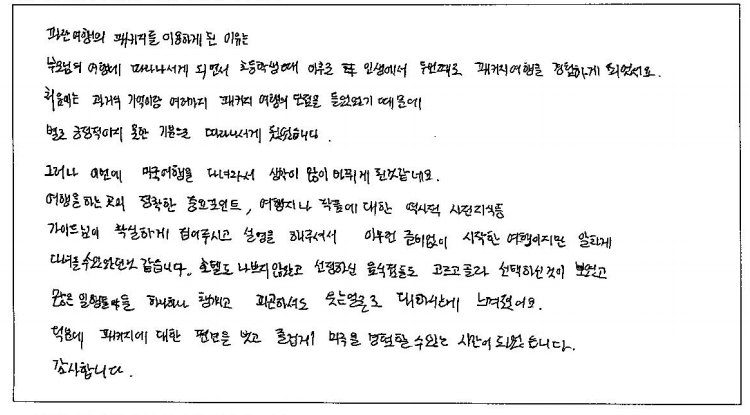 과산여행의 패키지를 이용하게 된 이유는
부모님의 여행에 따라나서게 되면서 초등학생때 이후로 인생에서 두번째로 패키지여행을 경험하게 되었어요.
처음에는 과거의 기억이랑 여러가지 패키지 여행의 단점을 들었었기 때문에
별로 긍정적이지 못한 기분으로 따라나서게 됐었습니다.
그러나 이번에 미국여행을 다녀와서 생각이 많이 바뀌게 된것같네요.
여행을하는 곳의 정확한 중요포인트, 여행지나 작품에 대한 역사적 사전지식등
가이드님이 확실하게 집어주시고 설명을 해주셔서 아무런 준비없이 시작한 여행이지만 알차게
다녀올수있었던것 같습니다. 호텔도 나쁘지않았고 선정하신 음식점들도 고르고골라 선택하신것이 보였고
많은 일행들을 하나하나 챙기고 피곤하셔도 웃는얼굴로 대하시는게 느껴졌어요.
덕분에 패키지에 대한 편견을 벗고 즐겁게 미국을 경험할수있는 시간이 되었습니다.
감사합니다.